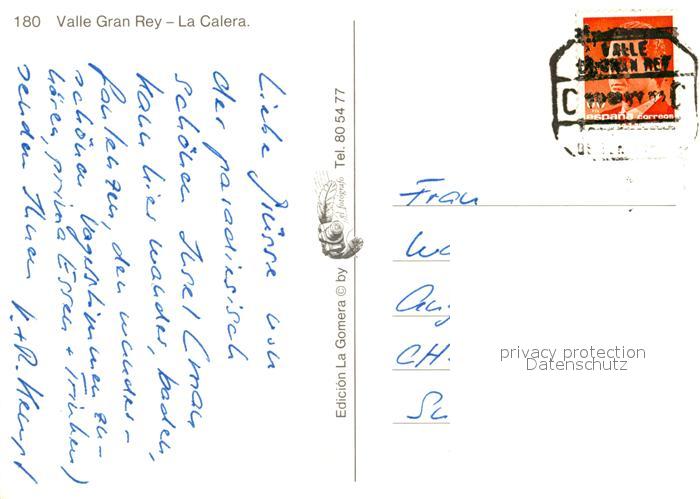 180 Valle Gran Rey – La Calera.
Liebe Grüsse von
der paradiesisch
schönen Insel
kann hier wandern, baden,
faulenzen, den wunder-
schönen Vogelstimmen zu-
hören, prima Essen + trinken)
senden Ihnen
Edición La Gomera © by el fotógrafo Tel. 80 54 77
VALLE
GRAN REY
C C
españa correos
Frau
CH-
privacy protection
Datenschutz